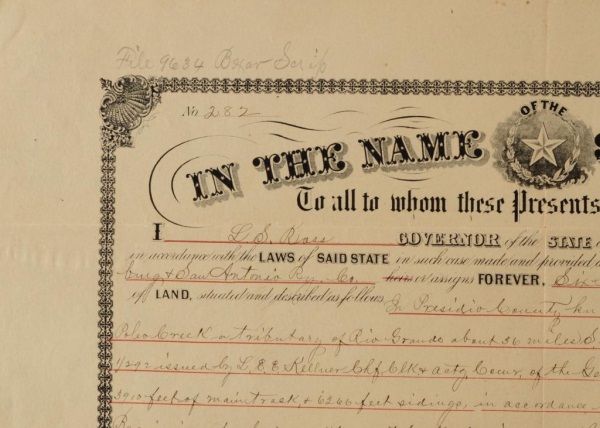 File 9634 Bexar Scrip
No. 282
OF THE
IN THE NAME S
To all to whom these Presents
I L. S. Ross GOVERNOR of the STATE
in accordance with the LAWS of SAID STATE in such case made and provided d
burg & San Antonio Ry. Co. heirs or assigns FOREVER, Six
of LAND, situated and described as follows: In Presidio County, kn
Polvo Creek a tributary of Rio Grande about 36 miles S.
1/292 issued by L. E. E. Kellner Chf Clk & actg Comr. of the Ge
3910 feet of main track & 6266 feet sidings, in accordance